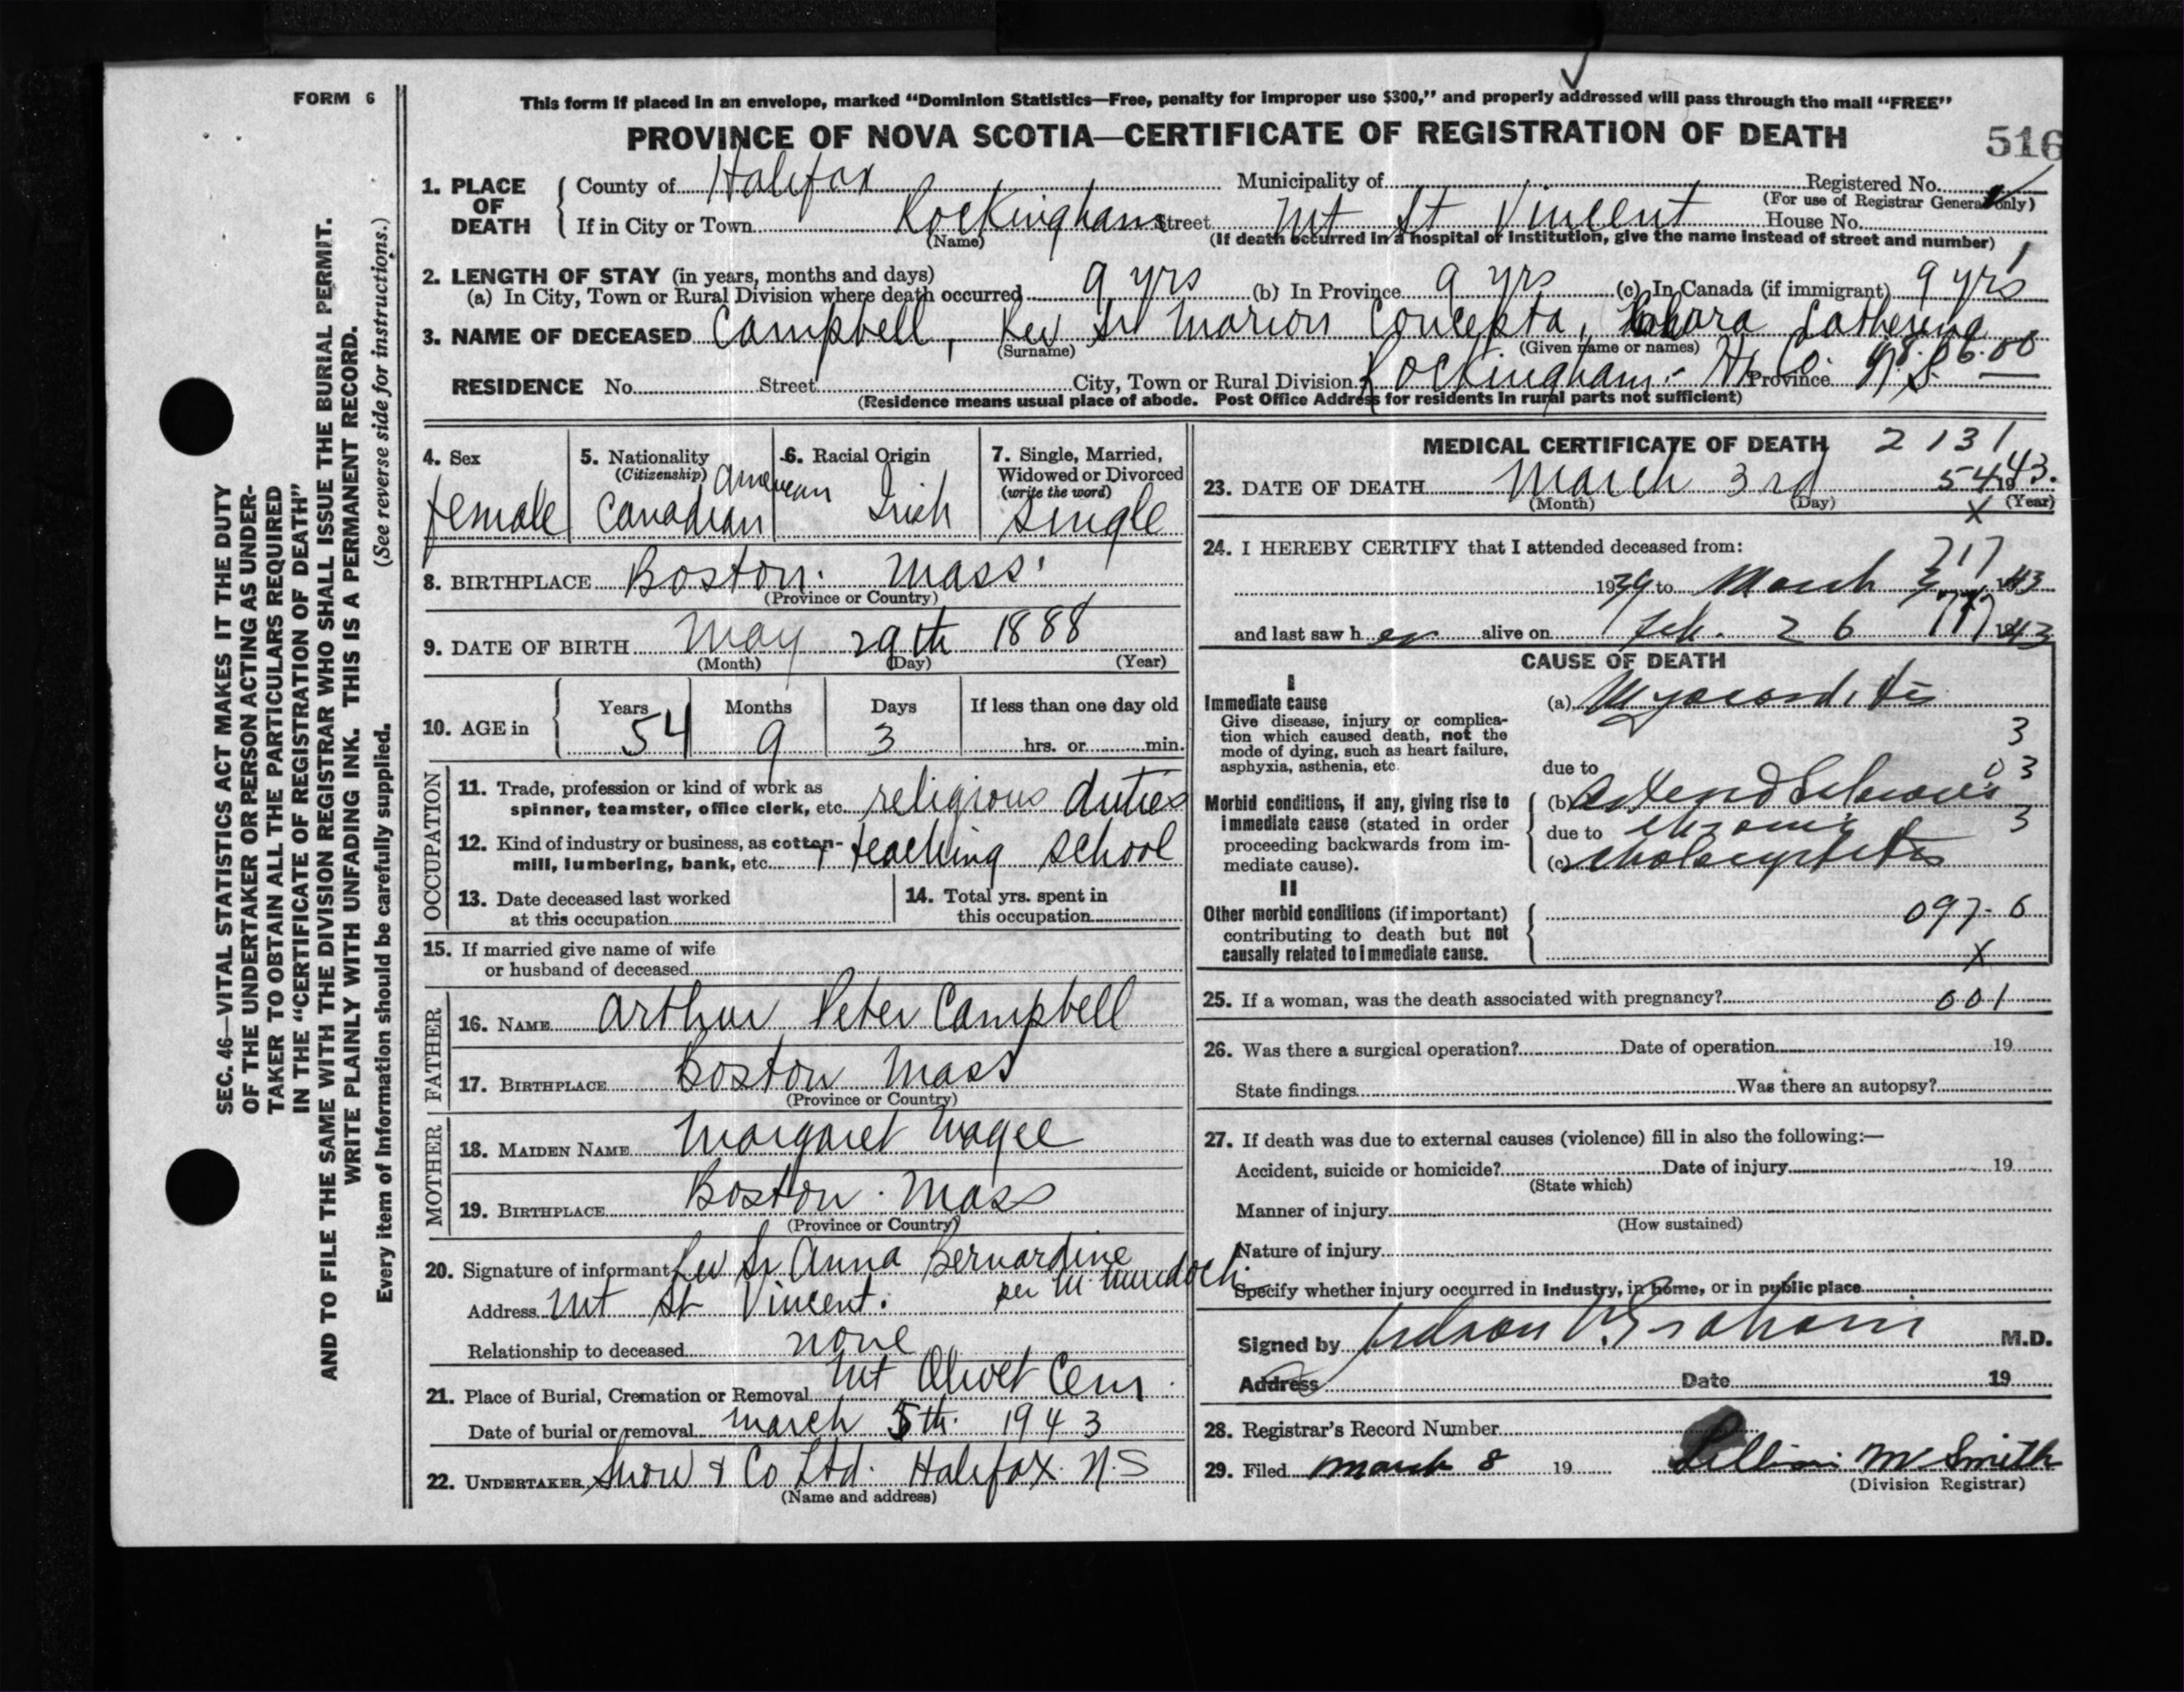 FORM 6
This form if placed in an envelope, marked "Dominion Statistics—Free, penalty for improper use $300," and properly addressed will pass through the mail "FREE"
PROVINCE OF NOVA SCOTIA—CERTIFICATE OF REGISTRATION OF DEATH
516
1. PLACE OF DEATH
County of Halifax Municipality of Registered No.
(For use of Registrar General only)
If in City or Town Rockingham Street Mt St Vincent House No.
(Name) (If death occurred in a hospital or institution, give the name instead of street and number)
2. LENGTH OF STAY (in years, months and days)
(a) In City, Town or Rural Division where death occurred 9 yrs (b) In Province 9 yrs (c) In Canada (if immigrant) 9 yrs
3. NAME OF DECEASED Campbell, Rev Sr Marion Concepta,
(Surname) (Given name or names)
RESIDENCE No. Street City, Town or Rural Division Rockingham - Hx Co. Province N.S.
(Residence means usual place of abode. Post Office Address for residents in rural parts not sufficient)
4. Sex
female
5. Nationality
(Citizenship)
American
Canadian
6. Racial Origin
Irish
7. Single, Married, Widowed or Divorced
(write the word)
Single
8. BIRTHPLACE Boston. Mass.
(Province or Country)
9. DATE OF BIRTH May 29th 1888
(Month) (Day) (Year)
10. AGE in
Years Months Days If less than one day old
54 9 3 hrs. or min.
OCCUPATION
11. Trade, profession or kind of work as
spinner, teamster, office clerk, etc. religious duties
12. Kind of industry or business, as cotton-
mill, lumbering, bank, etc. teaching school
13. Date deceased last worked
at this occupation
14. Total yrs. spent in
this occupation
15. If married give name of wife
or husband of deceased
FATHER
16. NAME Arthur Peter Campbell
17. BIRTHPLACE Boston Mass
(Province or Country)
MOTHER
18. MAIDEN NAME Margaret Magee
19. BIRTHPLACE Boston. Mass
(Province or Country)
20. Signature of informant Rev Sr Anna Bernardine
per M Murdoch
Address Mt St Vincent.
Relationship to deceased none
21. Place of Burial, Cremation or Removal Mt Olivet Cem.
Date of burial or removal March 5th. 1943
22. UNDERTAKER Snow & Co Ltd. Halifax N.S
(Name and address)
MEDICAL CERTIFICATE OF DEATH 2131
23. DATE OF DEATH March 3rd 1943.
(Month) (Day) (Year)
54
X
24. I HEREBY CERTIFY that I attended deceased from:
717
1939 to March 3 1943
and last saw h er alive on Feb. 26 1943
777
CAUSE OF DEATH
I
Immediate cause
Give disease, injury or complica-
tion which caused death, not the
mode of dying, such as heart failure,
asphyxia, asthenia, etc.
(a) Myocarditis
3
due to
03
Morbid conditions, if any, giving rise to
immediate cause (stated in order
proceeding backwards from im-
mediate cause).
(b) Arteriosclerosis
3
due to chronic
(c) cholecystitis
II
Other morbid conditions (if important)
contributing to death but not
causally related to immediate cause.
097-6
X
25. If a woman, was the death associated with pregnancy? 001
26. Was there a surgical operation? Date of operation 19
State findings Was there an autopsy?
27. If death was due to external causes (violence) fill in also the following:—
Accident, suicide or homicide? Date of injury 19
(State which)
Manner of injury
(How sustained)
Nature of injury
Specify whether injury occurred in Industry, in home, or in public place
Signed by Judson V. Graham M.D.
Address Date 19
28. Registrar's Record Number
29. Filed March 8 19 Lillian M Smith
(Division Registrar)
SEC. 46—VITAL STATISTICS ACT MAKES IT THE DUTY
OF THE UNDERTAKER OR PERSON ACTING AS UNDER-
TAKER TO OBTAIN ALL THE PARTICULARS REQUIRED
IN THE "CERTIFICATE OF REGISTRATION OF DEATH"
AND TO FILE THE SAME WITH THE DIVISION REGISTRAR WHO SHALL ISSUE THE BURIAL PERMIT.
WRITE PLAINLY WITH UNFADING INK. THIS IS A PERMANENT RECORD.
(See reverse side for instructions.)
Every item of Information should be carefully supplied.